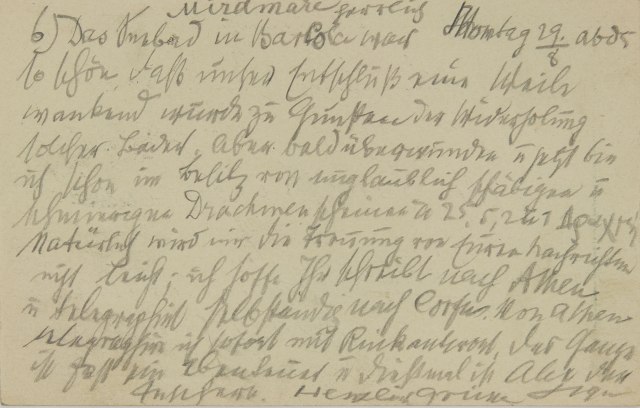 Miramare herrlich
6) Das Seebad in Barcola war Montag 29/8 abds
so schön, daß unser Entschluß eine Weile
wankend wurde zu Gunsten der Widerholung
solcher Bäder. Aber bald überwunden u jetzt bin
ich schon im Besitz von unglaublich schäbigen u
schmierigen Drachmenscheinen à 25, 5, 2 u 1 Δραχμή
Natürlich wird mir die Trennung von Euren Nachrichten
nicht leicht; ich hoffe Ihr schreibt nach Athen
u telegraphirt selbständig nach Corfu. Von Athen
telegraphire ich sofort mit Rückantwort. Das Ganze
ist fast ein Abenteuer u diesmal ist Alex der
Herzlich Grüße